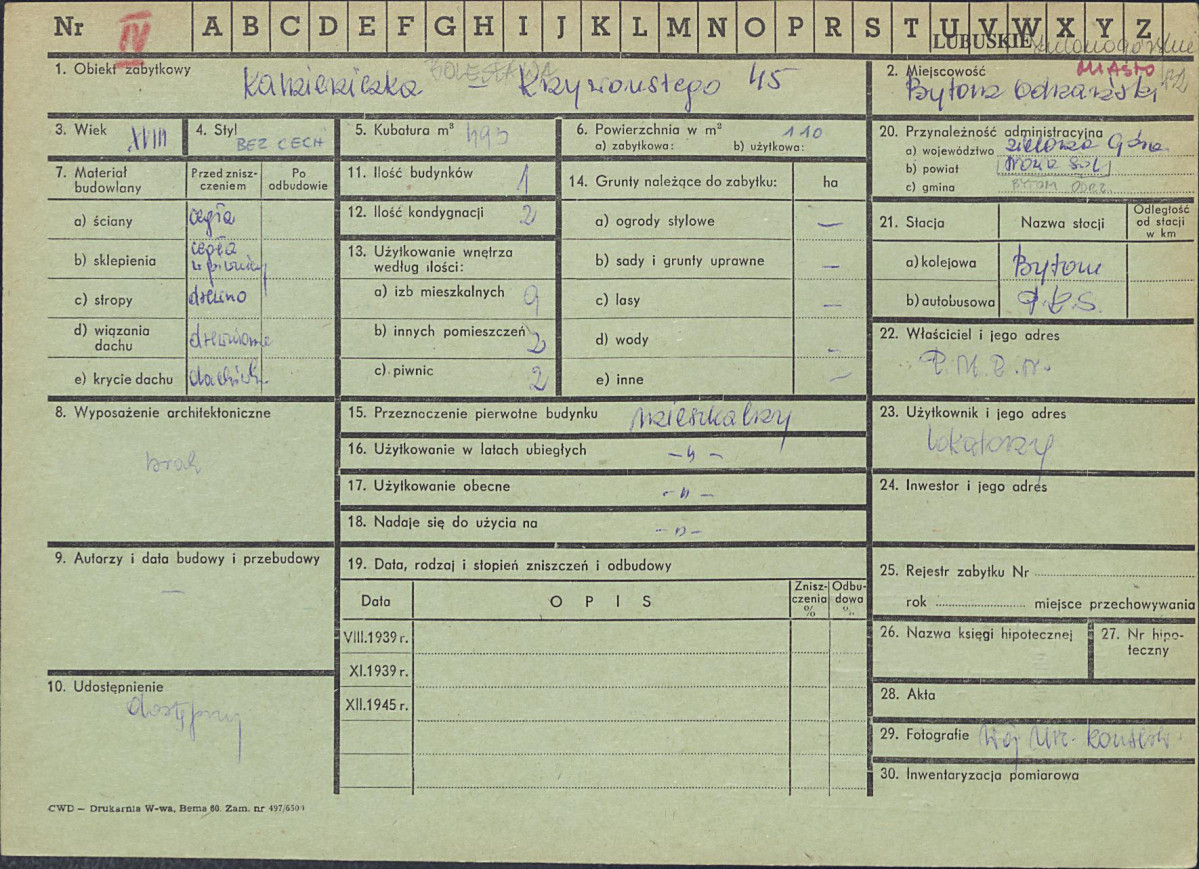 Nr IV A B C D E F G H I J K L M N O P R S T U V W X Y Z
LUBUSKIE
1. Obiekt zabytkowy
BOLESŁAWA
Kamieniczka – Krzywoustego 45
2. Miejscowość MIASTO
Bytom Odrzański
3. Wiek XVIII
4. Styl
BEZ CECH
5. Kubatura m³ 495
6. Powierzchnia w m² 110
a) zabytkowa: b) użytkowa:
20. Przynależność administracyjna
a) województwo Zielona Góra
b) powiat Nowa Sól
c) gmina BYTOM ODRZ.
7. Materiał budowlany
Przed znisz-
czeniem
Po
odbudowie
a) ściany cegła
b) sklepienia cegła
w piwnicy
c) stropy drewno
d) wiązania
dachu drewniane
e) krycie dachu dachówk.
11. Ilość budynków 1
12. Ilość kondygnacji 2
13. Użytkowanie wnętrza
według ilości:
a) izb mieszkalnych 9
b) innych pomieszczeń 2
c) piwnic 2
14. Grunty należące do zabytku: ha
a) ogrody stylowe —
b) sady i grunty uprawne —
c) lasy —
d) wody —
e) inne —
21. Stacja Nazwa stacji
Odległość
od stacji
w km
a) kolejowa Bytom
b) autobusowa P.K.S.
22. Właściciel i jego adres
P.M.R.N.
8. Wyposażenie architektoniczne
brak
15. Przeznaczenie pierwotne budynku mieszkalny
16. Użytkowanie w latach ubiegłych –"–
17. Użytkowanie obecne –"–
18. Nadaje się do użycia na –"–
23. Użytkownik i jego adres
lokatorzy
24. Inwestor i jego adres
9. Autorzy i data budowy i przebudowy
—
19. Data, rodzaj i stopień zniszczeń i odbudowy
Data O P I S
Znisz-
czenia
%
Odbu-
dowa
%
VIII.1939 r.
XI.1939 r.
XII.1945 r.
25. Rejestr zabytku Nr
rok miejsce przechowywania
26. Nazwa księgi hipotecznej
27. Nr hipo-
teczny
10. Udostępnienie
dostępny
28. Akta
29. Fotografie Woj. Urz. Konserw.
30. Inwentaryzacja pomiarowa
CWD — Drukarnia W-wa, Bema 60. Zam. nr 497/650